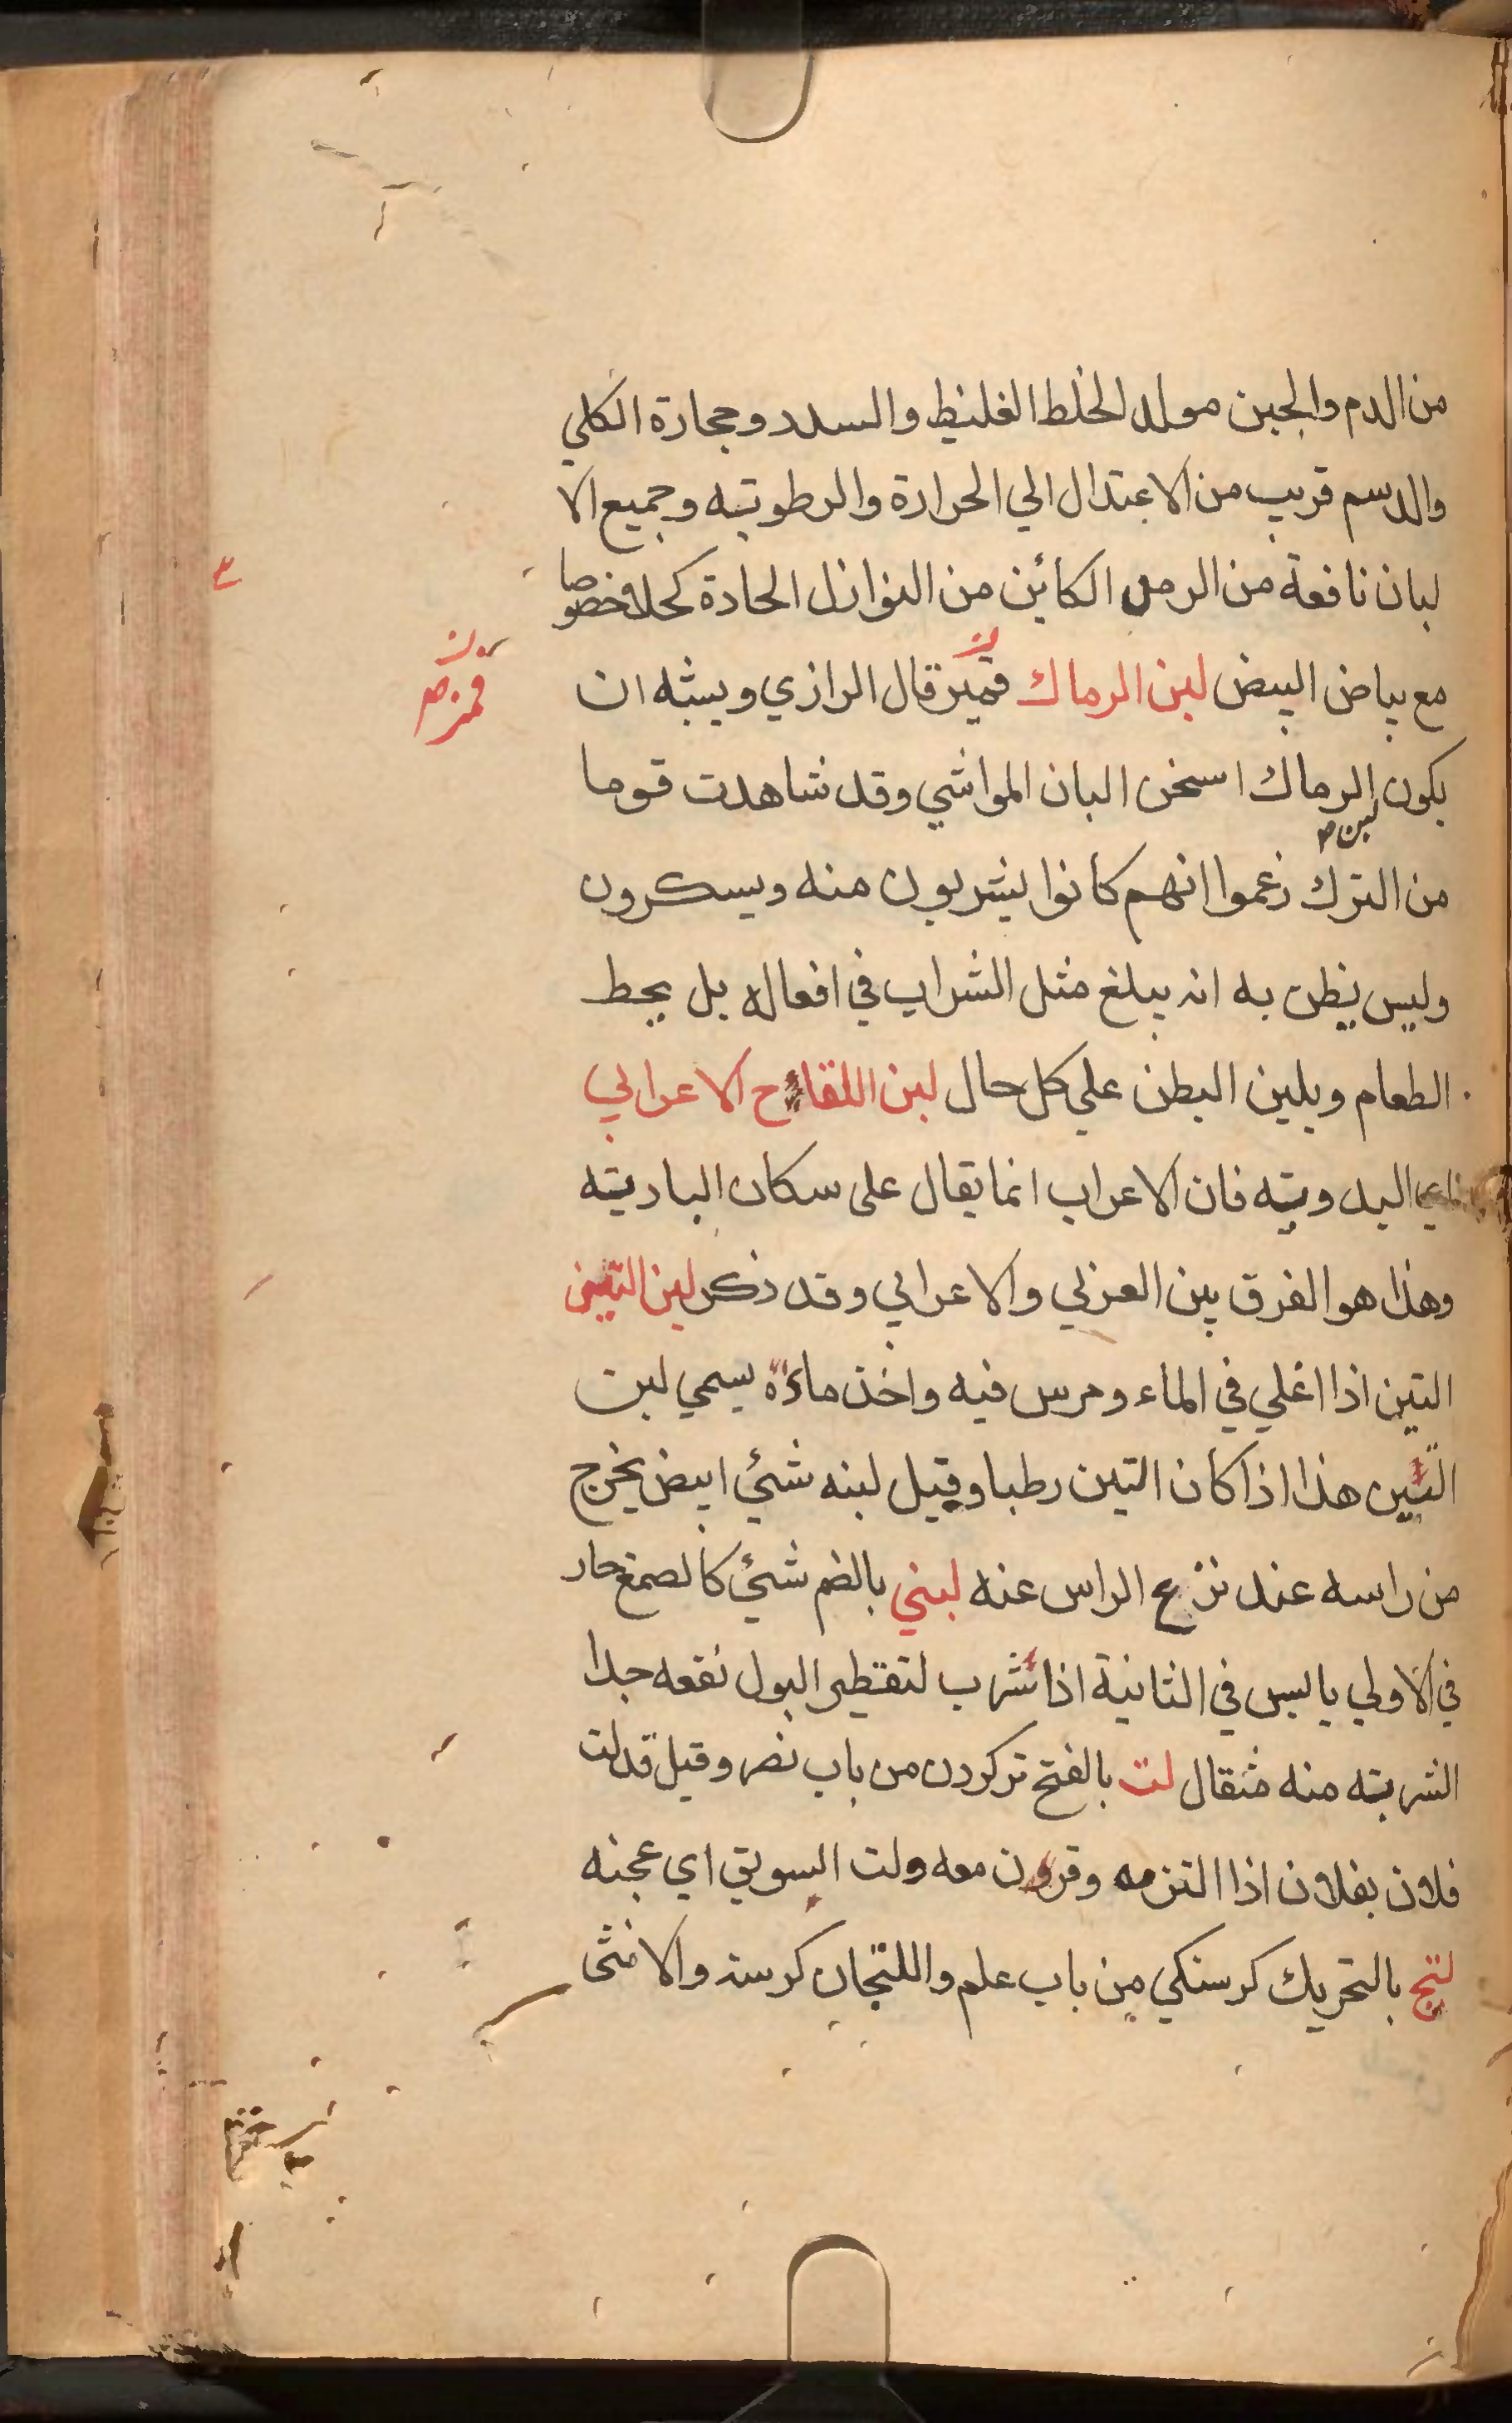 من الدم والجبن مولد لخلط الغليظ والسدد وحجارة الكلي
والدسم قريب من الاعتدال الي الحرارة والرطوبته وجميع الا
لبان نافعة من الرمد الكائن من النوازل الحادة كحلا وخصوصا
مع بياض البيض لبن الرماك قميز قال الرازي ويشبه ان
قمز ص
يكون الرماك اسخن البان المواشي وقد شاهدت قوما
لبن ص
من الترك زعموا انهم كانوا يشربون منه ويسكرون
وليس يظن به انه يبلغ مثل الشراب في افعاله بل يحط
الطعام ويلين البطن علي كل حال لبن اللقاح الاعرابي
اي البدويته فان الاعراب انما يقال على سكان الباديته
وهذا هو الفرق بين العربي والاعرابي وقد ذكر لبن التين
التين اذا اغلي في الماء ومرس فيه واخذ ماؤه يسمي لبن
التين هذا اذا كان التين رطبا وقيل لبنه شئ ابيض يخرج
من راسه عند نزع الراس عنه لبني بالضم شئ كالصمغ حار
في الاولي يابس في الثانية اذا شرب لتقطير البول نفعه جدا
الشربته منه مثقال لت بالفتح تركردن من باب نصر وقيل قد لت
فلان بفلان اذا التزمه وقرن معه ولت السويق اي عجنه
لتج بالتحريك كرسنكي من باب علم واللتجان كرسنه والانثى